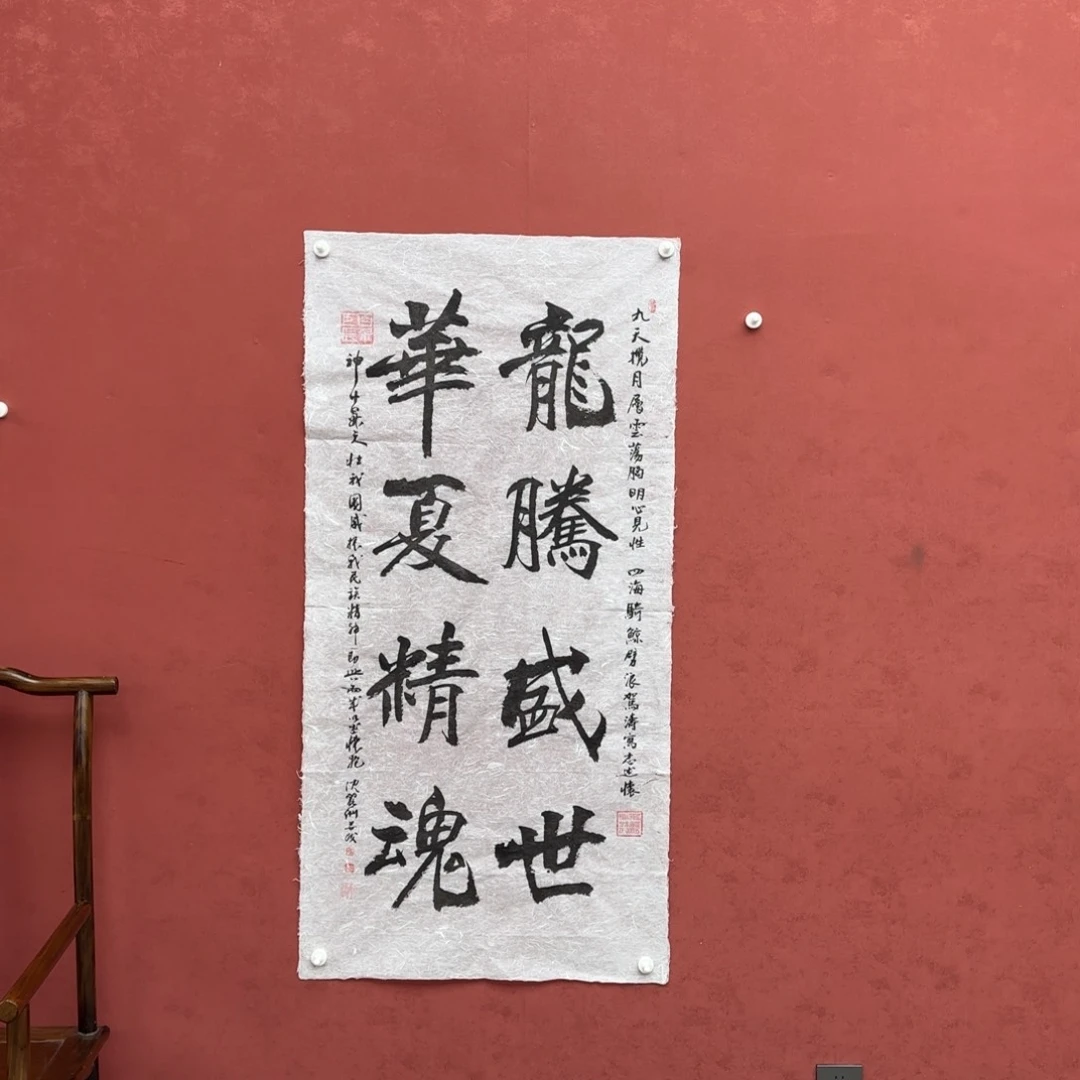 九天攬月層雲蕩胸明心見性 四海騎鯨劈浪駕濤寫志述懷
龍騰盛世
華夏精魂
壯我國威振我民族精神即興而成